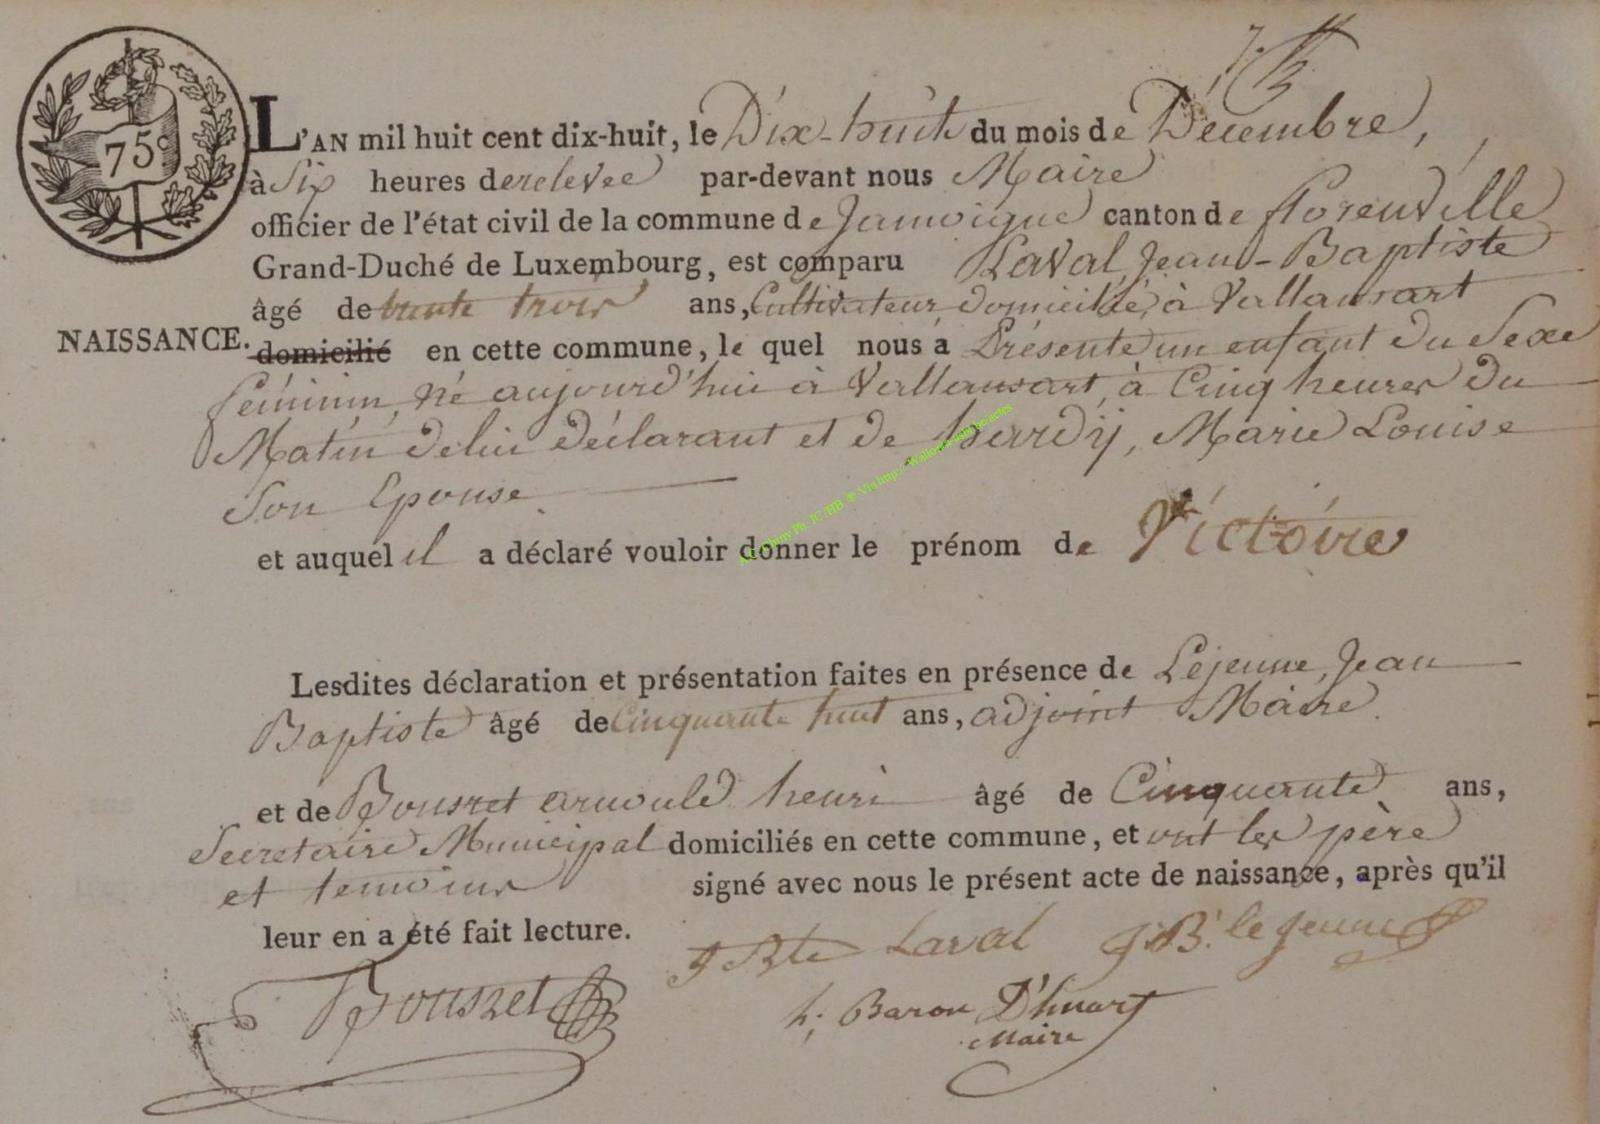 75c
L'AN mil huit cent dix-huit, le Dix-huit du mois de Décembre,
à Six heures de relevée par-devant nous Maire
officier de l'état civil de la commune de Jamoigne canton de florenville
Grand-Duché de Luxembourg, est comparu Laval, Jean-Baptiste
âgé de trente trois ans, Cultivateur domicilié, à Vallansart
NAISSANCE. domicilié en cette commune, le quel nous a Présenté un enfant du Sexe
féminin, né aujourd'hui à Vallansart, à Cinq heures du
Matin, de lui déclarant et de hardÿ, Marie Louise
Son Epouse
et auquel il a déclaré vouloir donner le prénom de Victoire
Lesdites déclaration et présentation faites en présence de Lejeune, Jean
Baptiste âgé de Cinquante huit ans, adjoint Maire
et de Bouszet arnould henri âgé de Cinquante ans,
Secretaire Municipal domiciliés en cette commune, et ont les père
et temoins signé avec nous le présent acte de naissance, après qu'il
leur en a été fait lecture.
J Bte Laval J. B. le Jeune
Bouszet h; Baron D'huart
Maire